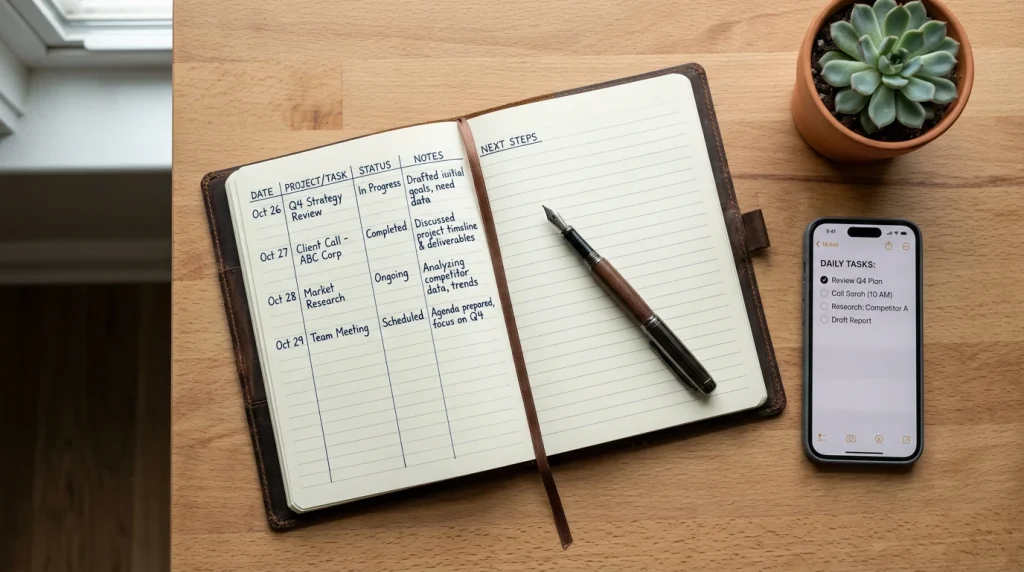 DATE PROJECT/TASK STATUS NOTES
Oct 26 Q4 Strategy Review In Progress Drafted iuitial goals, need data
Oct 27 Client Call - ABC Corp Completed Discussed project timsline & deliverables
Oct 28 Market Research Ongoing Analyzing competitor data, trends
Oct 29 Team Meeting Scheduled Agenda prepared, focus on Q4
NEXT STEPS
9:41
Notes
DAILY TASKS:
Review Q4 Plan
Call Sarah (10 AM)
Research: Competitor A
Draft Report